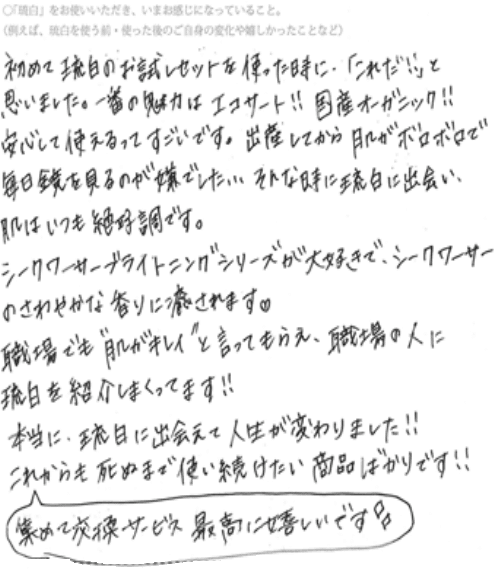 ○「琉白」をお使いいただき、いまお感じになっていること。
（例えば、琉白を使う前・使った後のご自身の変化や嬉しかったことなど）
初めて琉白のお試しセットを使った時に、「これだ!!」と
思いました。一番の魅力はエコサート!! 国産オーガニック!!
安心して使えるってすごいです。出産してから肌がボロボロで
毎日鏡を見るのが嫌でした... そんな時に琉白に出会い、
肌はいつも絶好調です。
シークワーサーブライトニングシリーズが大好きで、シークワーサー
のさわやかな香りに癒されます♡
職場でも"肌がキレイ"と言ってもらえ、職場の人に
琉白を紹介しまくってます!!
本当に、琉白に出会えて人生が変わりました!!
これからも死ぬまで使い続けたい商品ばかりです!!
集めて交換サービス最高に嬉しいです